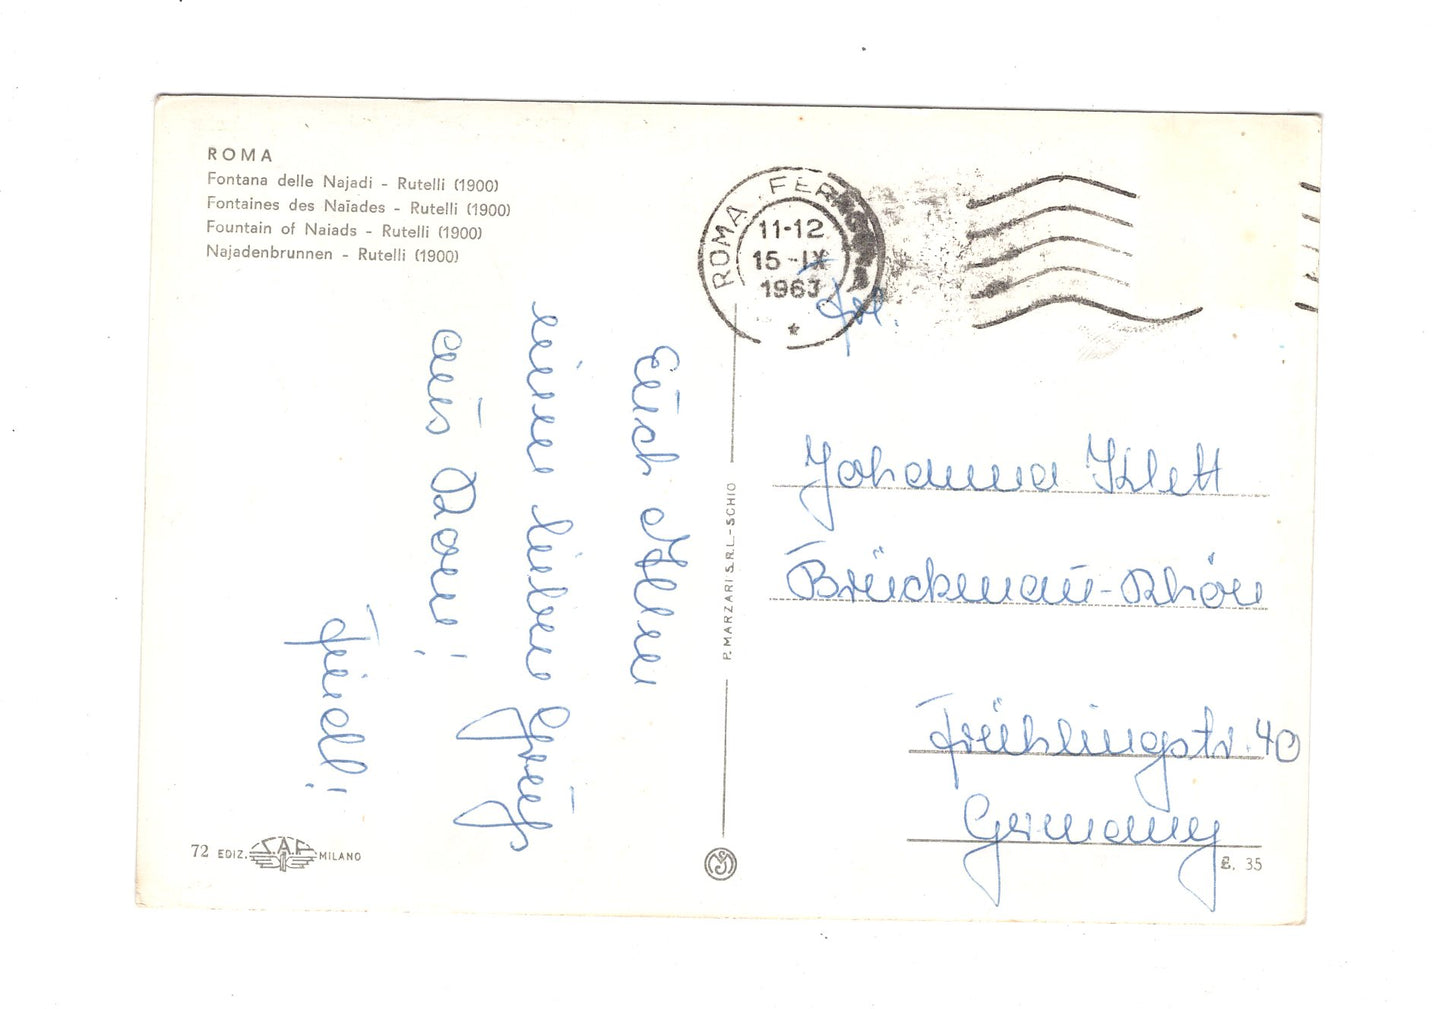 ROMA
Fontana delle Najadi - Rutelli (1900)
Fontaines des Naïades - Rutelli (1900)
Fountain of Naiads - Rutelli (1900)
Najadenbrunnen - Rutelli (1900)
Euch Allen
einen lieben Gruß
aus Rom!
ROMA FERROVIA
11-12
15-IX
1963
Frl.
Johanna Klett
Brückenau-Rhön
Frühlingstr. 40
Germany
P. MARZARI S.R.L. - SCHIO
72 EDIZ. S.A.F. MILANO
£. 35